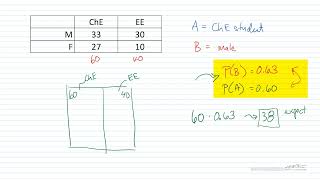 ChE EE
M 33 30
F 27 10
60 40
A = ChE student
B = male
P(B) = 0.63
P(A) = 0.60
ChE EE
60 40
60 · 0.63 → 38 expect